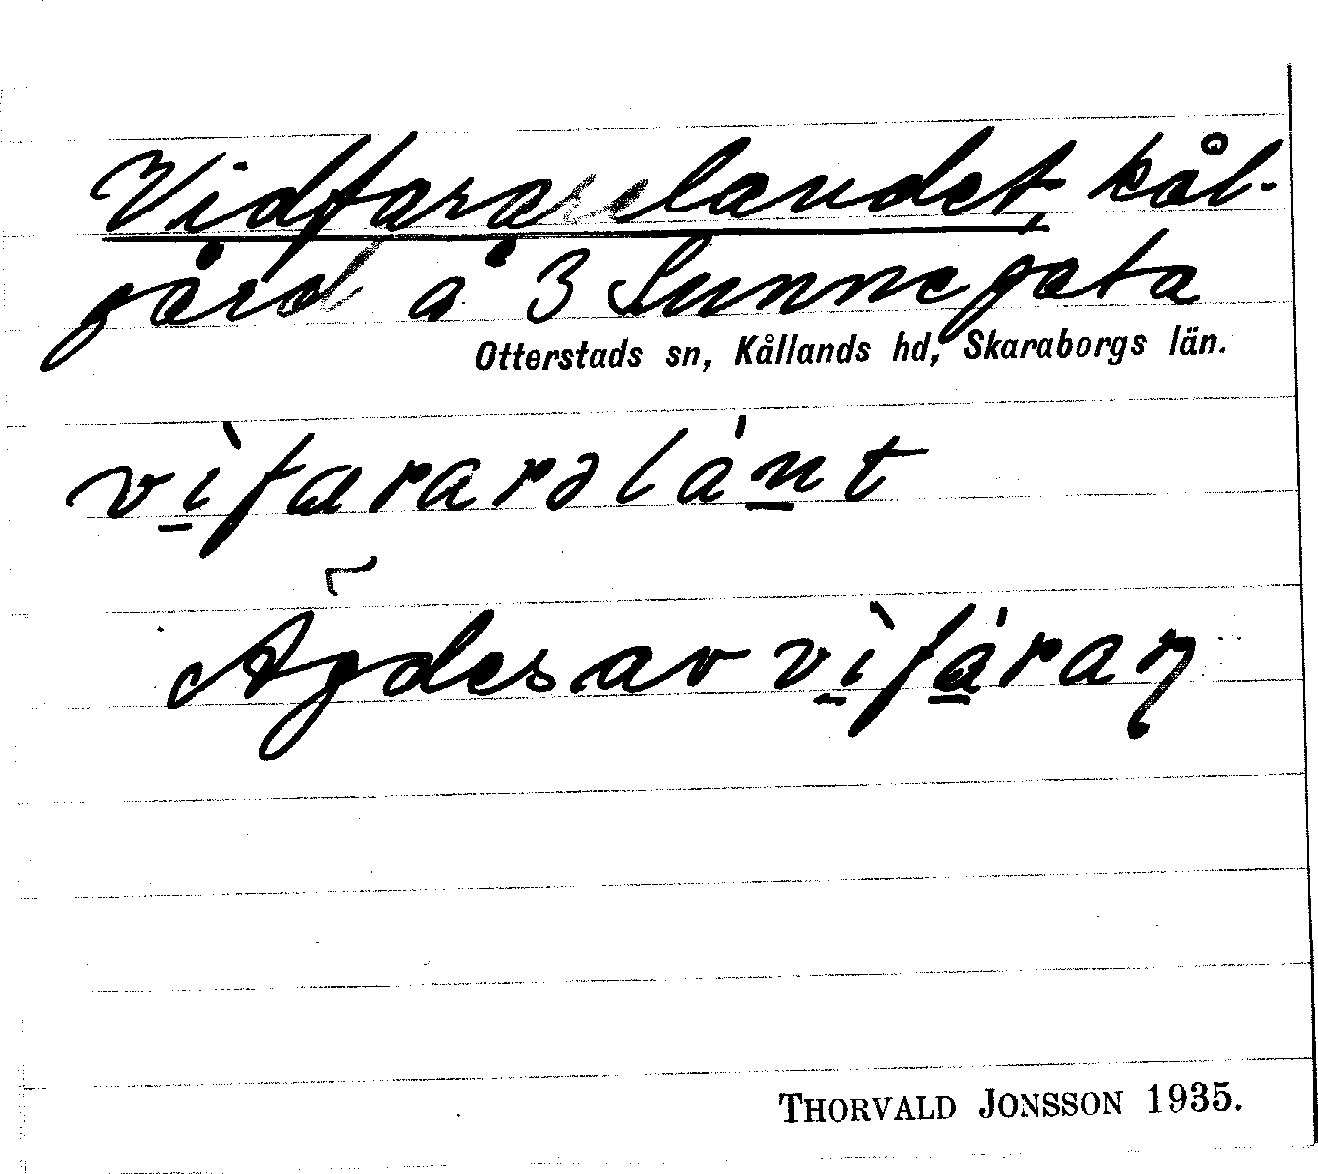 Vidfararelandet, kål-
gård å 3 Sunnegata
Otterstads sn, Kållands hd, Skaraborgs län.
vìfararəlánt
Ägdes av vìfáran
THORVALD JONSSON 1935.